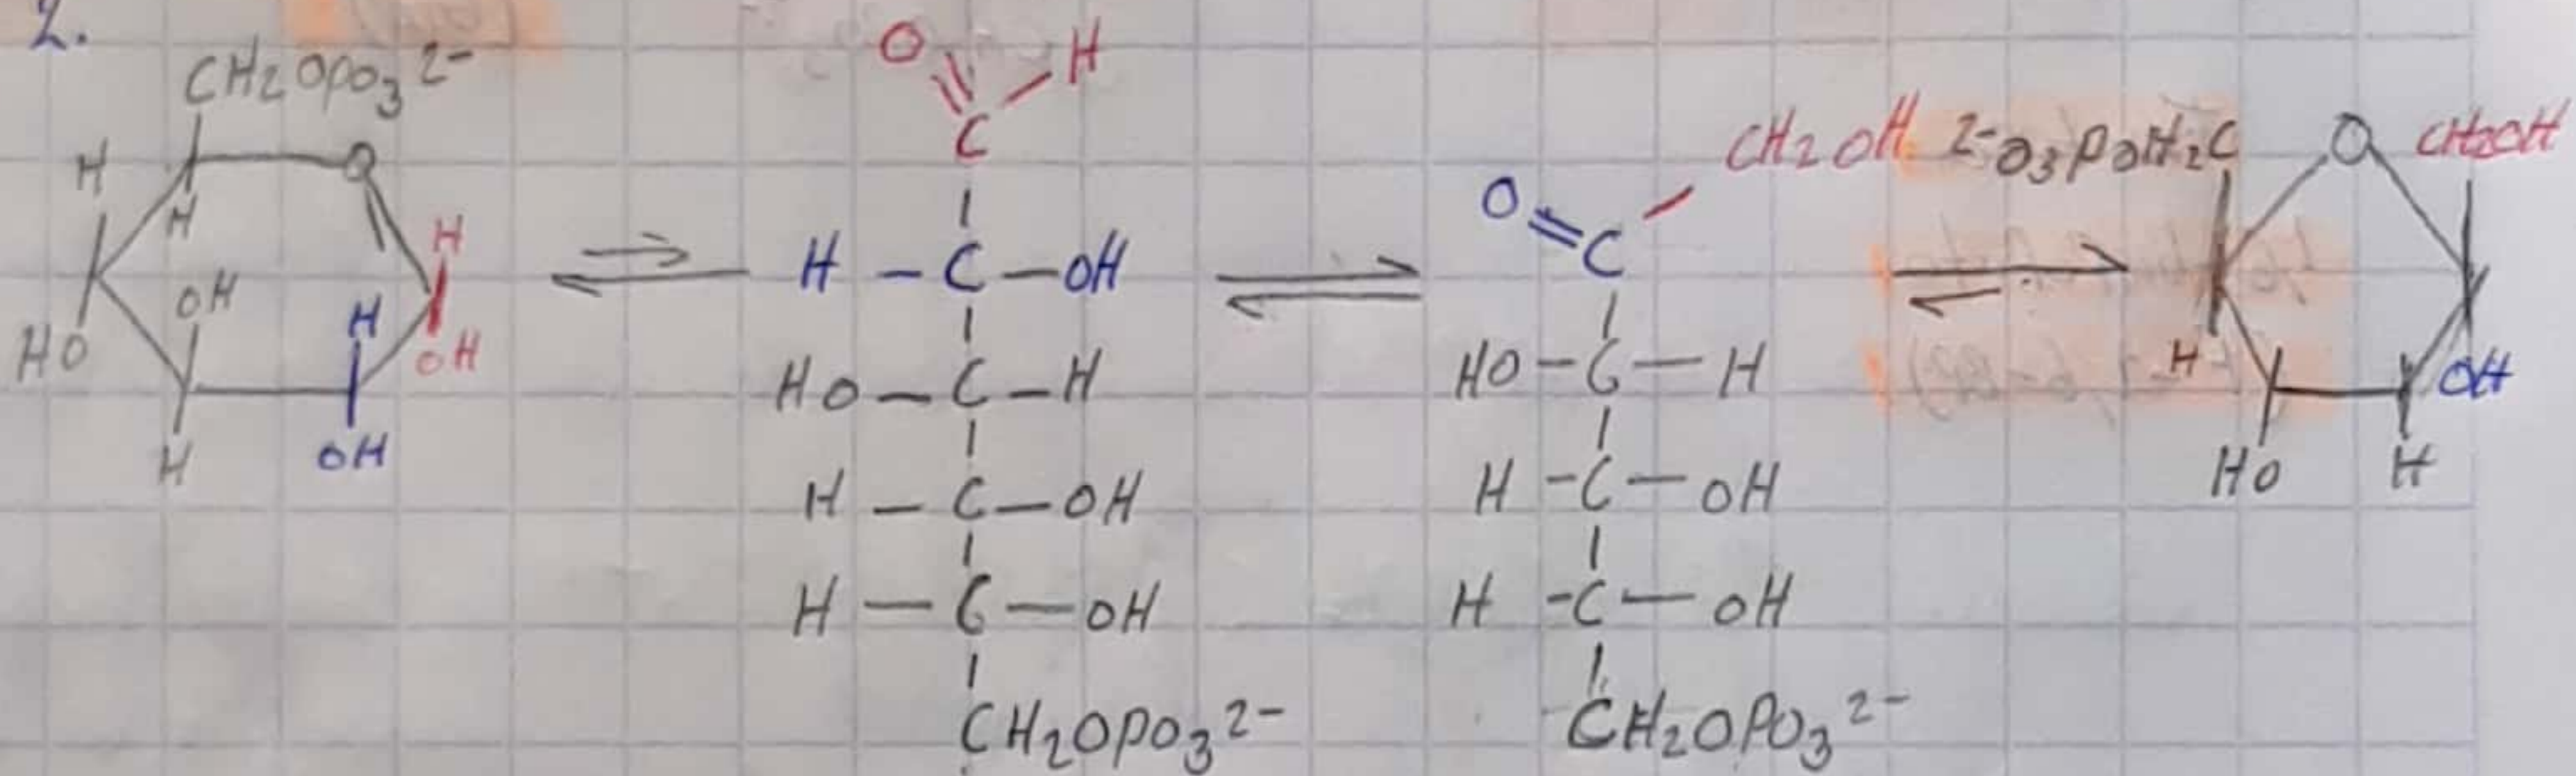 2.
CH2OPO3 2-
H
H
O
H
OH
H
HO
OH
H
OH
O
H
C
H - C - OH
HO - C - H
H - C - OH
H - C - OH
CH2OPO3 2-
O
C
CH2OH
HO - C - H
H - C - OH
H - C - OH
CH2OPO3 2-
2-O3POH2C
O
CH2OH
H
OH
HO
H